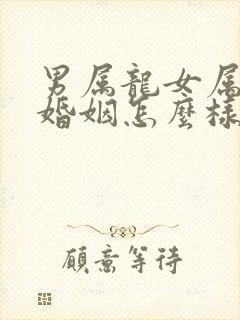 男属龍女属
婚姻怎麼様
願意等待